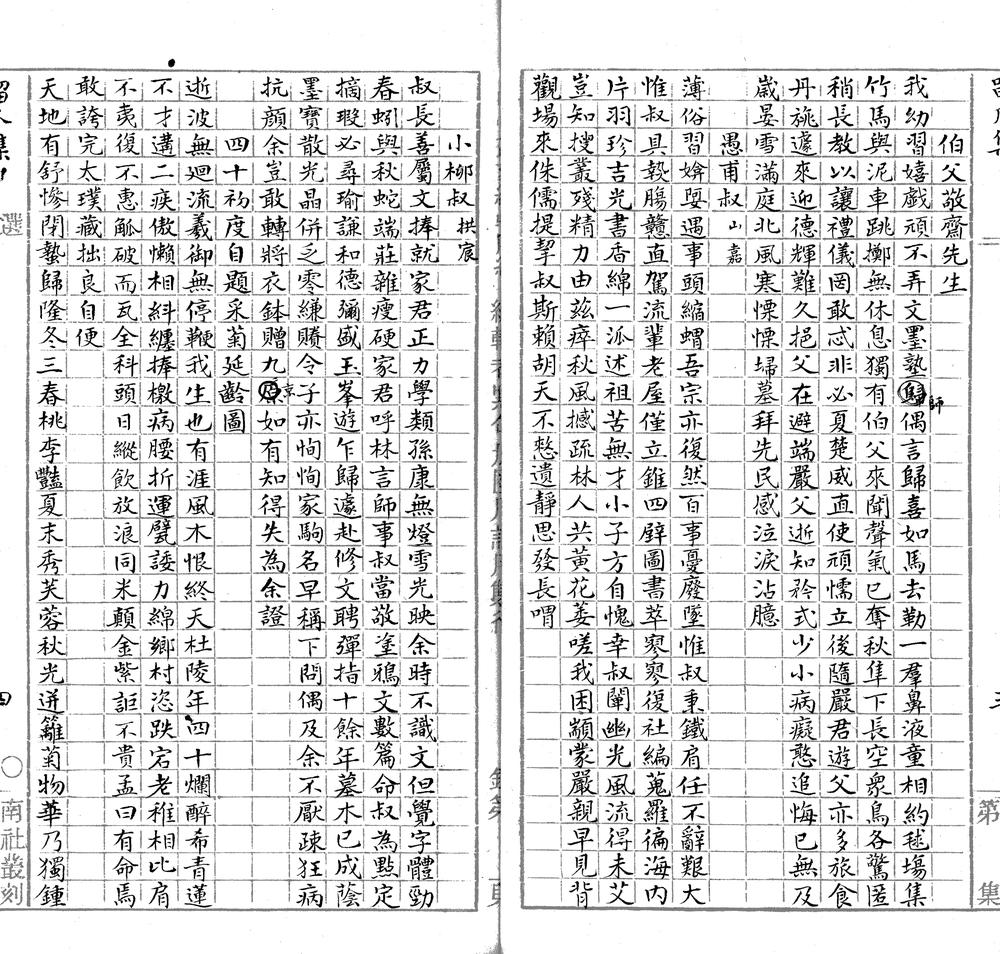 伯父敬齋先生
我幼習嬉戲頑不弄文墨塾歸偶言歸喜如馬去勒一羣鼻液童相約毬場集
師
竹馬與泥車跳擲無休息獨有伯父來聞聲氣已奪秋隼下長空衆鳥各驚匿
稍長教以讓禮儀罔敢忒非必夏楚威直使頑懦立後隨嚴君遊父亦多旅食
丹旐遽來迎德輝難久挹父在避端嚴父逝知矜式少小病癡憨追悔已無及
歲晏雪滿庭北風寒慄慄埽墓拜先民感泣淚沾臆
愚甫叔山嘉
薄俗習媕娿遇事頭縮蝟吾宗亦復然百事憂廢墜惟叔秉鐵肩任不辭艱大
惟叔具熱腸戇直駕流輩老屋僅立錐四壁圖書萃寥寥復社編蒐羅徧海內
片羽珍吉光書香綿一派述祖苦無才小子方自愧幸叔闡幽光風流得未艾
豈知搜叢殘精力由茲瘁秋風撼疏林人共黃花萎嗟我困顓蒙嚴親早見背
觀場來侏儒提挈叔斯賴胡天不憗遺靜思發長喟
小柳叔拱宸
叔長善屬文捧就家君正力學類孫康無燈雪光映余時不識文但覺字體勁
春蚓與秋蛇端莊雜瘦硬家君呼林言師事叔當敬塗鴉文數篇命叔為點定
摘瑕必尋瑜謙和德彌盛玉峯遊乍歸遽赴修文聘彈指十餘年墓木已成蔭
墨寶散光晶併乏零縑賸令子亦恂恂家駒名早稱下問偶及余不厭疎狂病
抗顏余豈敢轉將衣鉢贈九原如有知得失為余證
京
四十初度自題采菊延齡圖
逝波無迴流羲御無停鞭我生也有涯風木恨終天杜陵年四十爛醉希青蓮
不才遘二疾傲懶相糾纏捧檄病腰折運甓諉力綿鄉村恣跌宕老稚相比肩
不夷復不惠觚破而瓦全科頭日縱飲放浪同米顛金紫詎不貴孟曰有命焉
敢誇完太璞藏拙良自便
天地有舒慘閉蟄歸隆冬三春桃李豔夏末秀芙蓉秋光迸籬菊物華乃獨鍾
選
四
南社叢刻
第
集